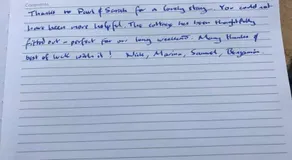 Comments:
Thanks to Paul & Sarah for a lovely stay. You could not
have been more helpful. The cottage has been thoughtfully
fitted out - perfect for our long weekend. Many thanks &
best of luck with it! Julie, Marina, Samuel, Benjamin